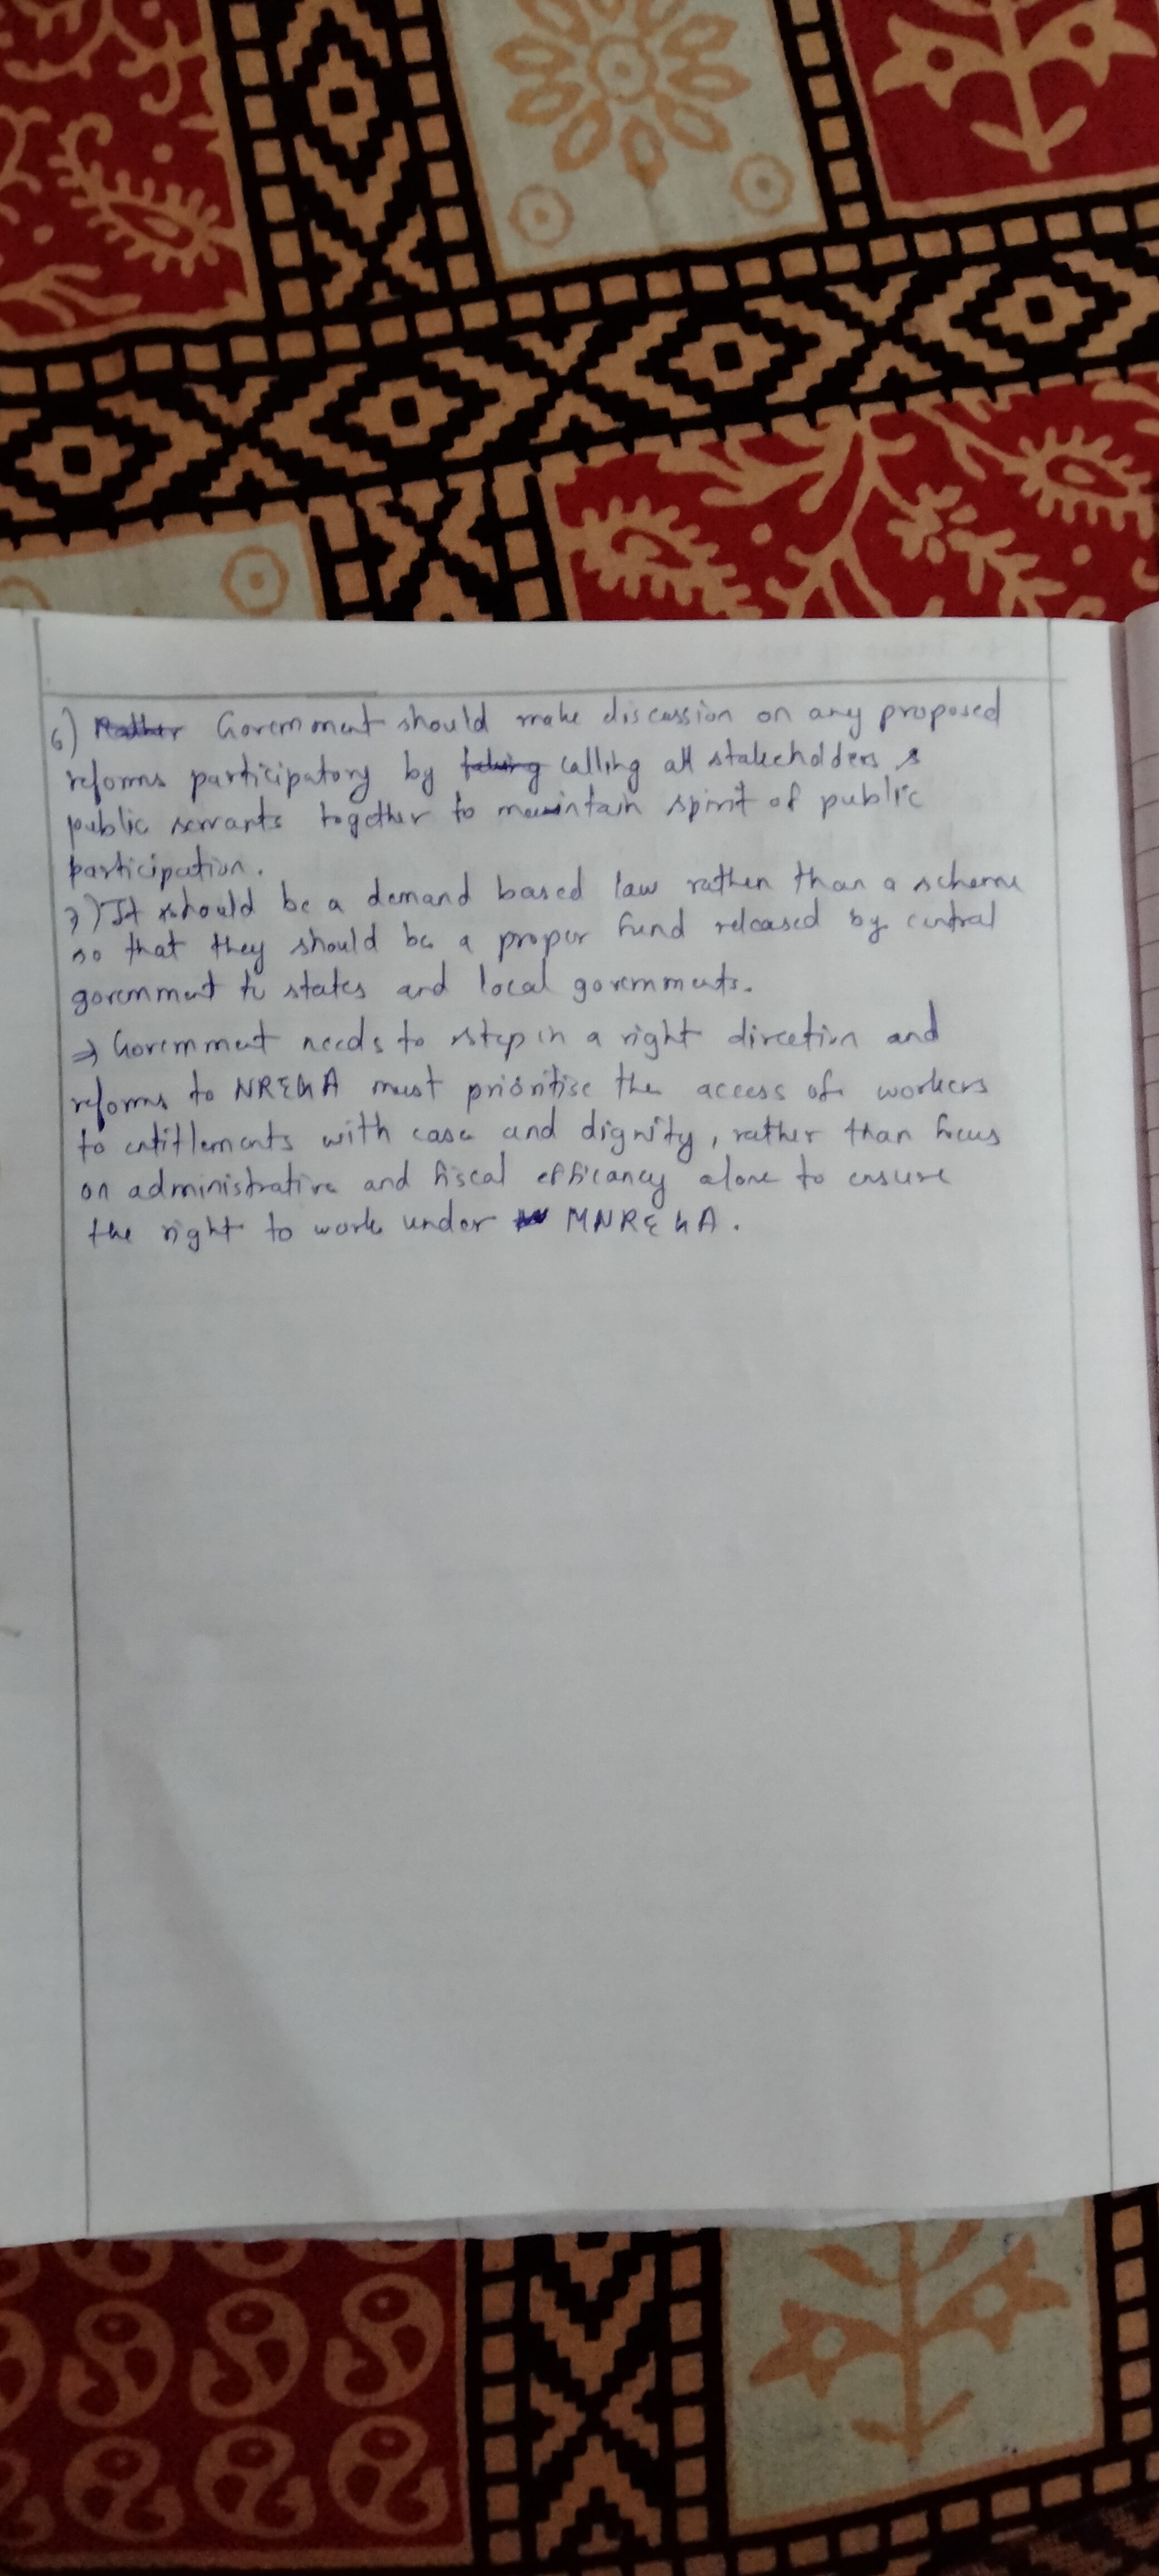 6) Government should make discussion on any proposed
reforms participatory by calling all stakeholders &
public servants together to maintain spirit of public
participation.
7) It should be a demand based law rather than a scheme
so that they should be a proper fund released by central
government to states and local governments.
⇒ Government needs to step in a right direction and
reforms to NREGA must prioritise the access of workers
to entitlements with ease and dignity, rather than focus
on administrative and fiscal efficancy alone to ensure
the right to work under MNREGA.